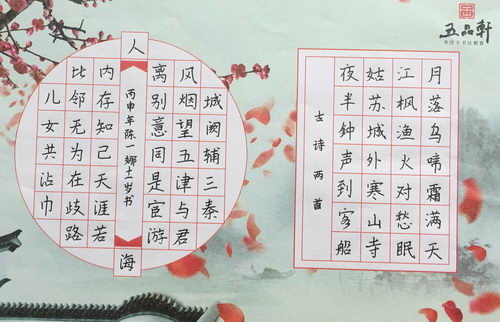 五品軒
专注于书法教育
月落乌啼霜满天
江枫渔火对愁眠
姑苏城外寒山寺
夜半钟声到客船
古诗两首
城阙辅三秦
风烟望五津与君
离别意同是宦游
人
丙申年陈一十一岁书
海
内存知己天涯若
比邻无为在歧路
儿女共沾巾